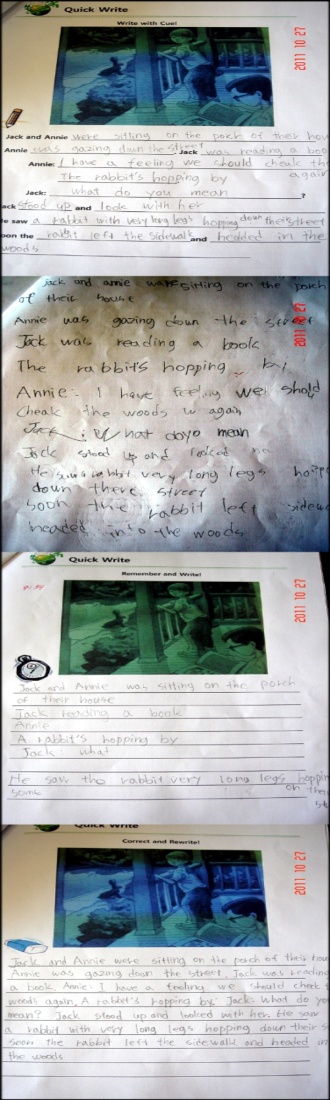 Quick Write
Write with Cue!
2011 10 27
Jack and Annie were sitting on the porch of their hou
Annie was gazing down the street Jack was reading a boo
Annie: I have a feeling we should cheak the
The rabbit's hopping by again
Jack: what do you mean ?
ack stood up and look with her
e saw a rabbit with very long legs hopping down their street
oon the rabbit left the sidewalk and headed in the
woods
Jack and annie was sitting on the porch
of their house
2011 10 27
Annie was gazing down the street
Jack was reading a book
The rabbit's hopping by
Annie: I have feeling we shold
Cheak the woods again
Jack: What doyo mean
Jack stood up and looked
He saw a rabbit very long legs
down there street
soon the rabbit left sidew
headed into the woods
Quick Write
Remember and Write!
2011 10 27
Jack and Annie was sitting on the porch
of their house
Jack reading a book
Annie
A rabbit's hopping by
Jack: what
He saw the rabbit very long legs hoppin
some on their
st
Quick Write
Correct and Rewrite!
2011 10 27
Jack and Annie were sitting on the porch of their hou
Annie was gazing down the street. Jack was reading
a book. Annie: I have a feeling we should check t
woods again. A rabbit's hopping by. Jack: What do yo
mean? Jack stood up and looked with her. He saw
a rabbit with very long legs hopping down their s
Soon the rabbit left the sidewalk and headed in
the woods